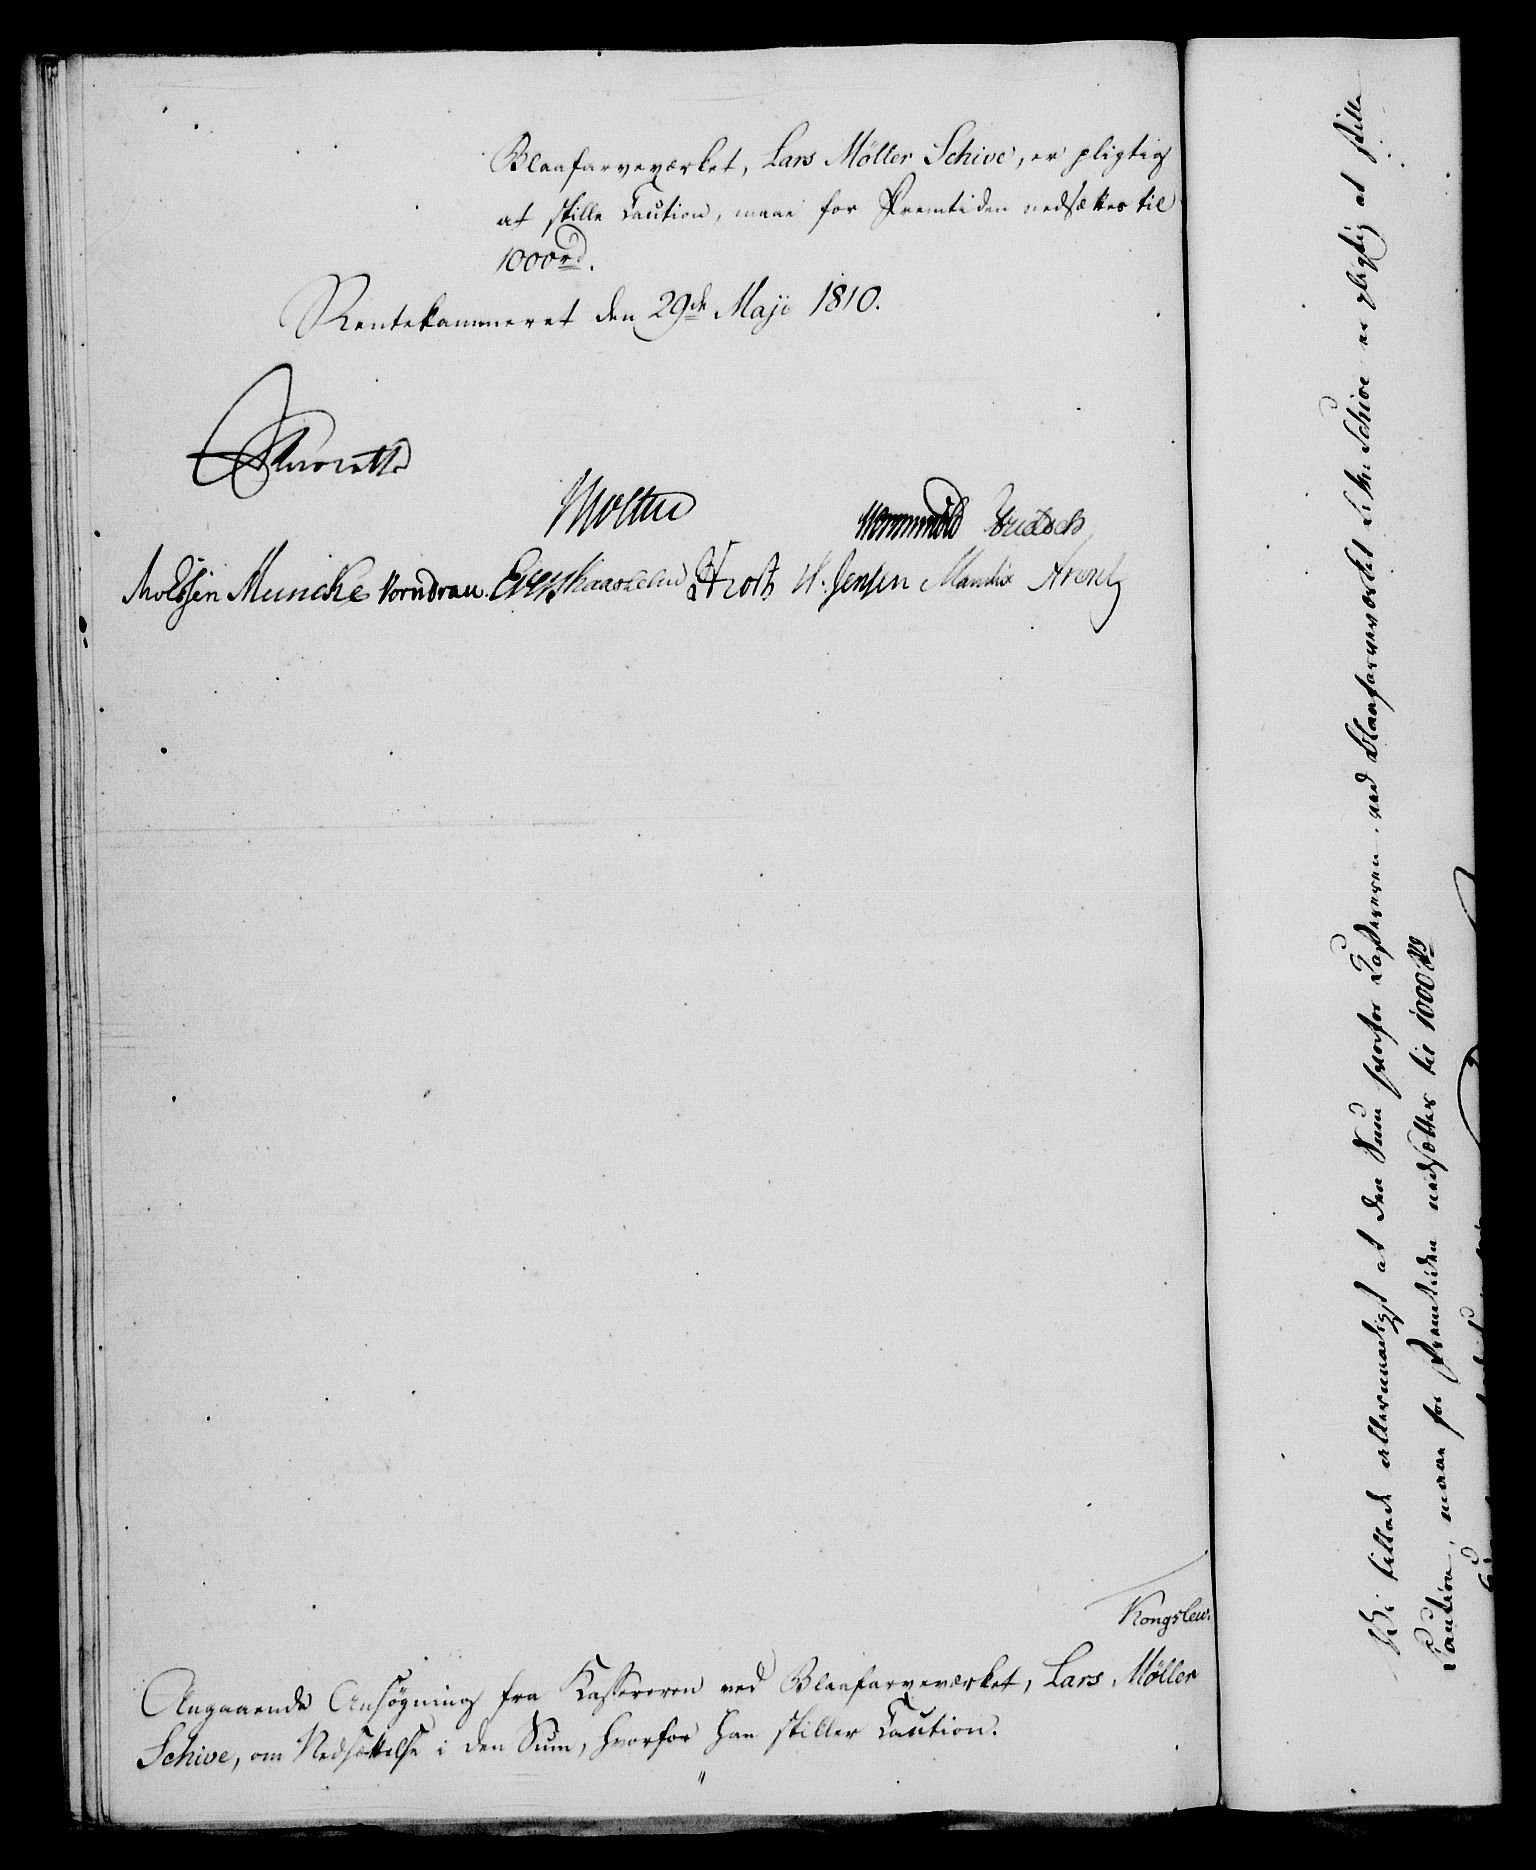 Blaafarveværket, Lars Möller Schive, er pligtig
at stille Caution, maae for Fremtiden nedsættes til
1000rd.
Rentekammeret den 29de Maji 1810.
Moltke
Wormskiold
Meincke Vorndran H. Jensen Manthix Arentz
Kongslew.
Angaaende Ansøgning fra Kassereren ved Blaafarveværket, Lars Möller
Schive, om Nedsættelse i den Sum, hvorfor han stiller Caution.
Vi tillade allernaadigst at den Sum hvorfor Cassereren ved Blaafarveværket L. M. Schive er pligtig at stille
Caution, maae for Fremtiden nedsættes til 1000 rd